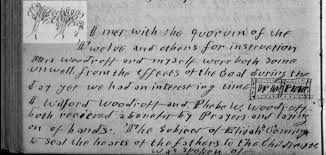 I met with the quorum of the
Twelve and others for instruction
Mrs Woodruff and myself were both some
unwell from the effects of the Coal during the
day yet we had an interesting time
I Wilford Woodruff and Phebe W. Woodruff
both received a benefit by Prayers and laying
on of hands. The subject of Elijah Coming
to seal the hearts of the fathers to the Children &c
was spoken of